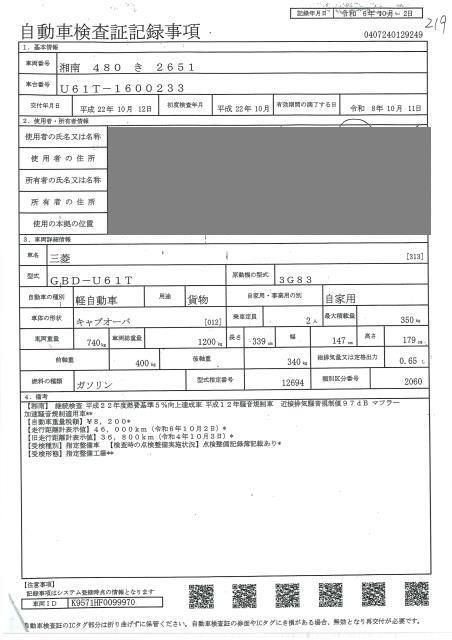 記録年月日 令和 6年10月 2日
219
自動車検査証記録事項
0407240129249
1．基本情報
車両番号 湘南 480 き 2651
車台番号 U61T－1600233
交付年月日 平成 22年 10月 12日 初度検査年月 平成 22年 10月 有効期間の満了する日 令和 8年 10月 11日
2．使用者・所有者情報
使用者の氏名又は名称
使用者の住所
所有者の氏名又は名称
所有者の住所
使用の本拠の位置
3．車両詳細情報
車名 三菱 [313]
型式 GBD－U61T 原動機の型式 3G83
自動車の種別 軽自動車 用途 貨物 自家用・事業用の別 自家用
車体の形状 キャブオーバ [012] 乗車定員 2人 最大積載量 350kg
車両重量 740kg 車両総重量 1200kg 長さ 339cm 幅 147cm 高さ 179cm
前軸重 400kg 後軸重 340kg 総排気量又は定格出力 0.65L
燃料の種類 ガソリン 型式指定番号 12694 類別区分番号 2060
4．備考
【湘南】 継続検査 平成22年度燃費基準5％向上達成車 平成12年騒音規制車 近接排気騒音規制値97dB マフラー
加速騒音規制適用車**
【自動車重量税額】¥8,200*
【走行距離計表示値】46,000km（令和6年10月2日）*
【旧走行距離計表示値】36,800km（令和4年10月3日）*
【受検種別】指定整備車 【検査時の点検整備実施状況】点検整備記録簿記載あり*
【受検形態】指定整備工場**
【注意事項】
記録事項はシステム登録時点の情報となります
車両ID K9571HF0099970
自動車検査証のICタグ部分は折り曲げずに保管ください。自動車検査証の券面やICタグにき損がある場合、無効となり再交付が必要です。